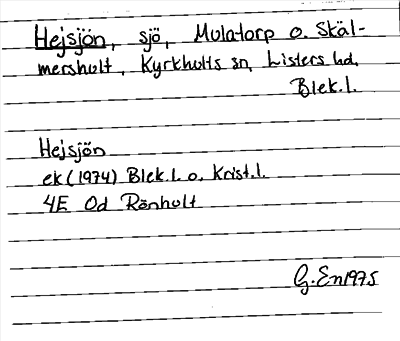 Hejsjön, sjö, Mulatorp o. Skäl-
mershult, Kyrkhults sn, Listers hd,
Blek.l.
Hejsjön
ek (1974) Blek.l. o. Krist.l.
4E 0d Rönhult
G. En 1975